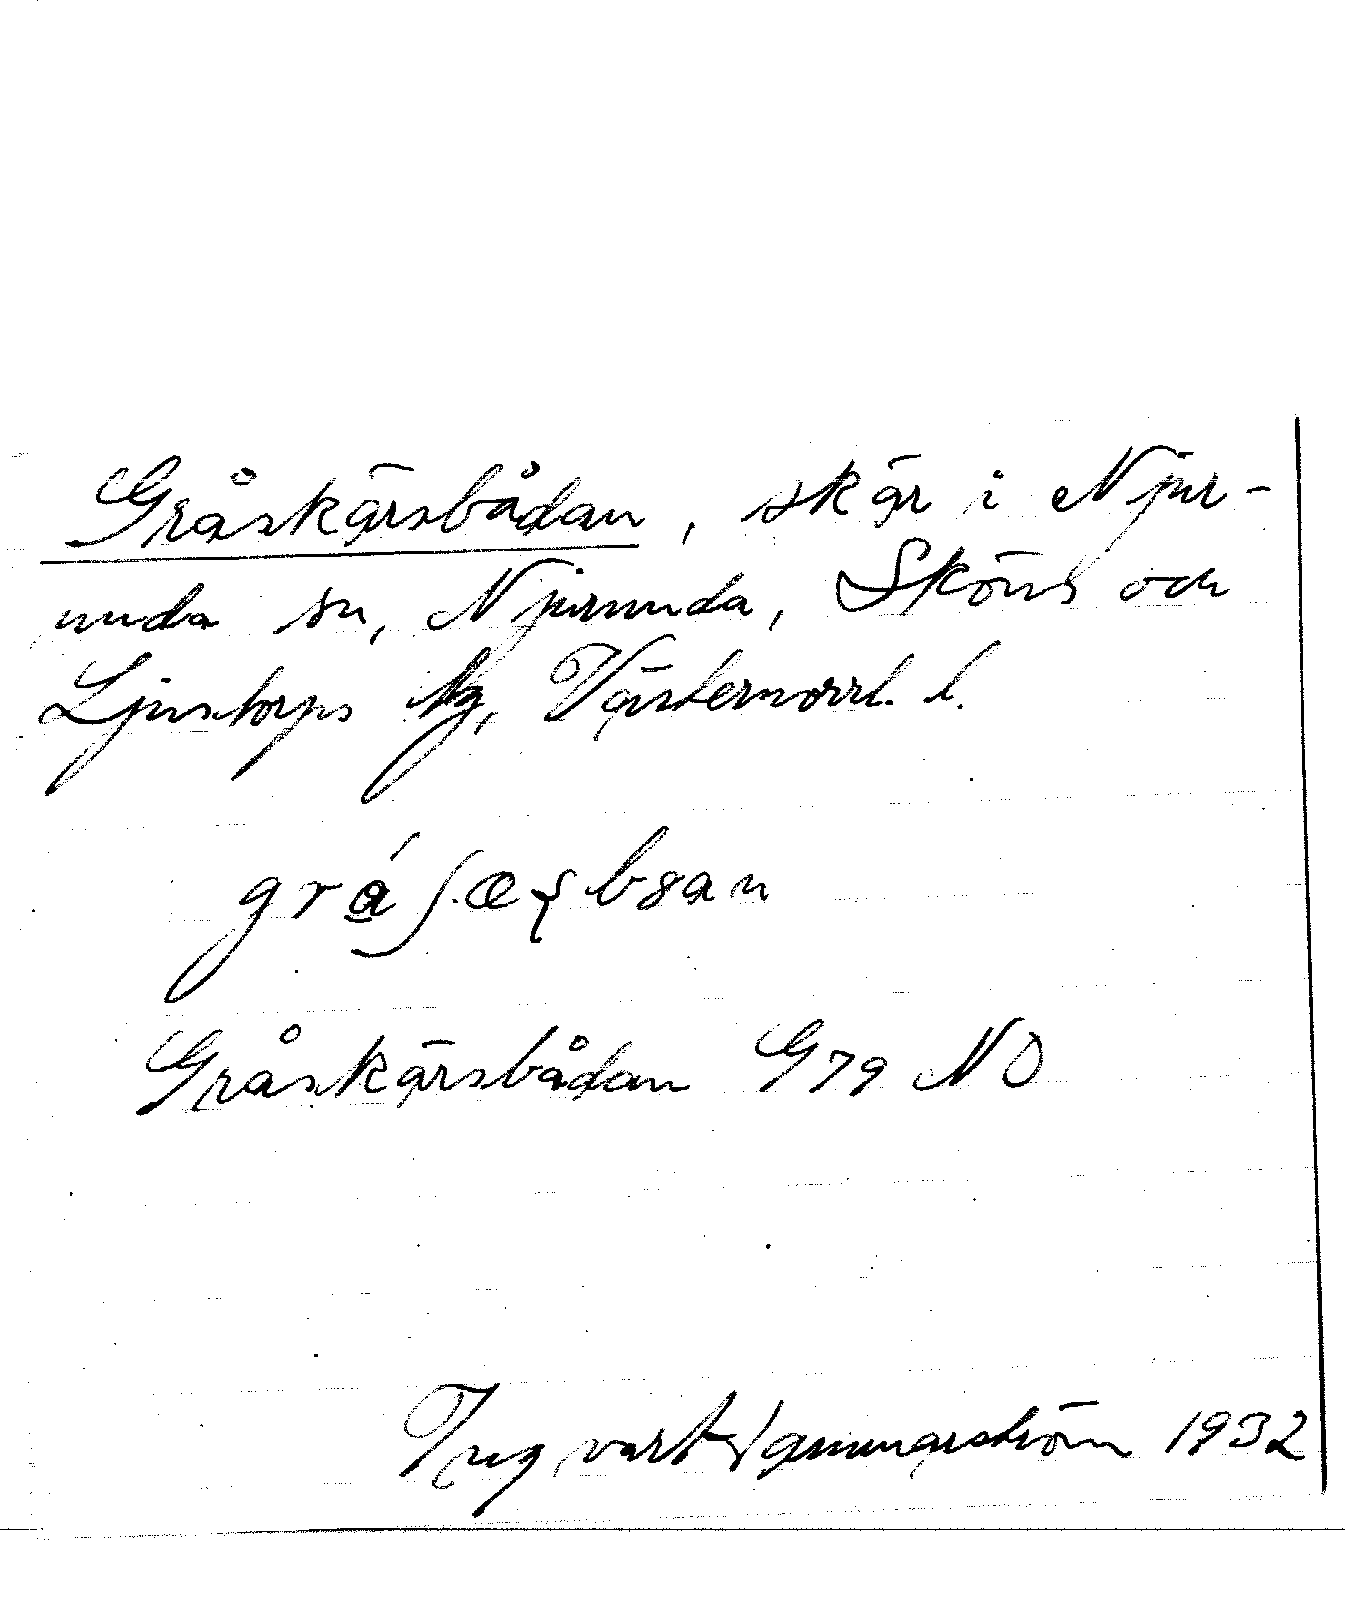 Gråskärsbådan, skär i Njur-
unda sn, Njurunda, Sköns och
Ljustorps tg, Västernorrl. l.
Gråskärsbådan G79 NO
Ingvart Hammarström 1932